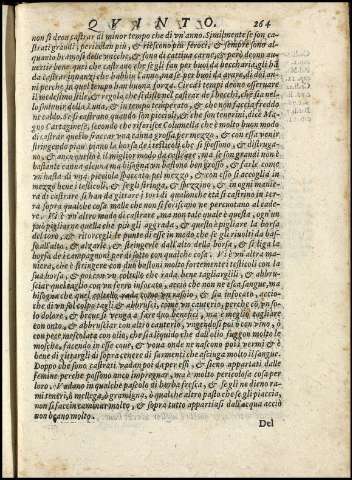 QVINTO. 264
non si deon castrar di minor tempo che di vn'anno. Similmente se son ca-
strati grãdi, pericolan più, & riescono più feroci, & sempre sono al-
quanto bramosi delle vacche, & sono di cattiua carne, & però deono au-
uertir bene quei che castrano che se gli han per buoi da beccharia gli hã
da castrar innanzi che habbin l'anno, ma se per buoi da arare, di doi an-
ni perche in quel tempo han buona forza. Circa il tempo deono osseruare
il medesimo stile, & regola che si disse nel castrar de i becchi, che sia nel-
lo scemar della Luna, & in tempo temperato, & che non faccia freddo
ne caldo. Se si castrano quando son piccoli, & che son tenerini, dice Ma-
gon Cartaginese, secondo che riferisce Columella che è molto buon modo
di castrar quello fracar vna canna grossa per mezzo, & con essa venir
stringendo pian piano la borsa de i testicoli che si spossino, & distrugga-
no, & anco questo è il miglior modo da castrare, ma se son grandi non è
bastante canna alcuna ma bisogna vn bastone ben grosso, & farlo come
vn'hasta di vna picciola spaccata pel mezzo, & con esso si accoglia in
mezzo bene i testicoli, & se gli stringa, & spezzino, & in ogni manie-
ra di castrare si han da gittare i tori di qualonche età si castrino in ter-
ra sopra qualche cosa molle che non si feriscano ne percotano al cade-
re. Vi è vn'altro modo di castrare, ma non tale quale è questa, ogn'un
può pigliarne quella che più gli aggrada, & questo è pigliare la borsa
del toro, & ritorcergli le punte di esse in modo che se gli riuolti da bas-
so all'alto, & alzarle, & stringerle dall'alto della borsa, & si liga la
borsa de i compagnoni per di sotto con qualche cosa. Vi è vn'altra ma-
niera, che è stringere con due bastoni molto fortemente i testicoli con la
sua borsa, & poi con vn coltello che rada bene tagliargli, & abbru-
sciar quel taglio con vn ferro infocato, accio che non ne esca sangue, ma
bisogna che quel coltello rada come vn rasoio, & sia infocato, accio-
che di vn sol colpo tagli & abbrusci, come vn cauterio, perche cõ vn so-
lo dolore, & breue, si venga a fare duo benefici, ma è meglio tagliare
con onto, & abbrusciar con altro cauterio, vngendosi poi ò con vino, ò
con pece mescolata con olio, che sia liquido che dall'olio fuggon molto le
mosche, facendo in esse cosi, & voua onde ne nascono poi i vermi & è
bene di gittargli di sopra cenere di sarmenti che asciuga molto il sangue.
Doppo che sono castrati vadan poi da per essi, & sieno appartati dalle
femine perche possono anco impregnar, ma è molto pericolosa cosa per
loro. Vadano in qualche pascolo di herba fresca, & se gli no dieno ra-
mi teneri, ò mellega, ò gramigna, ò qualche altro pasto che gli piaccia,
non si faccin caminar molto, & sopra tutto appartiasi dall'acqua acciò
non beano molto.
Del